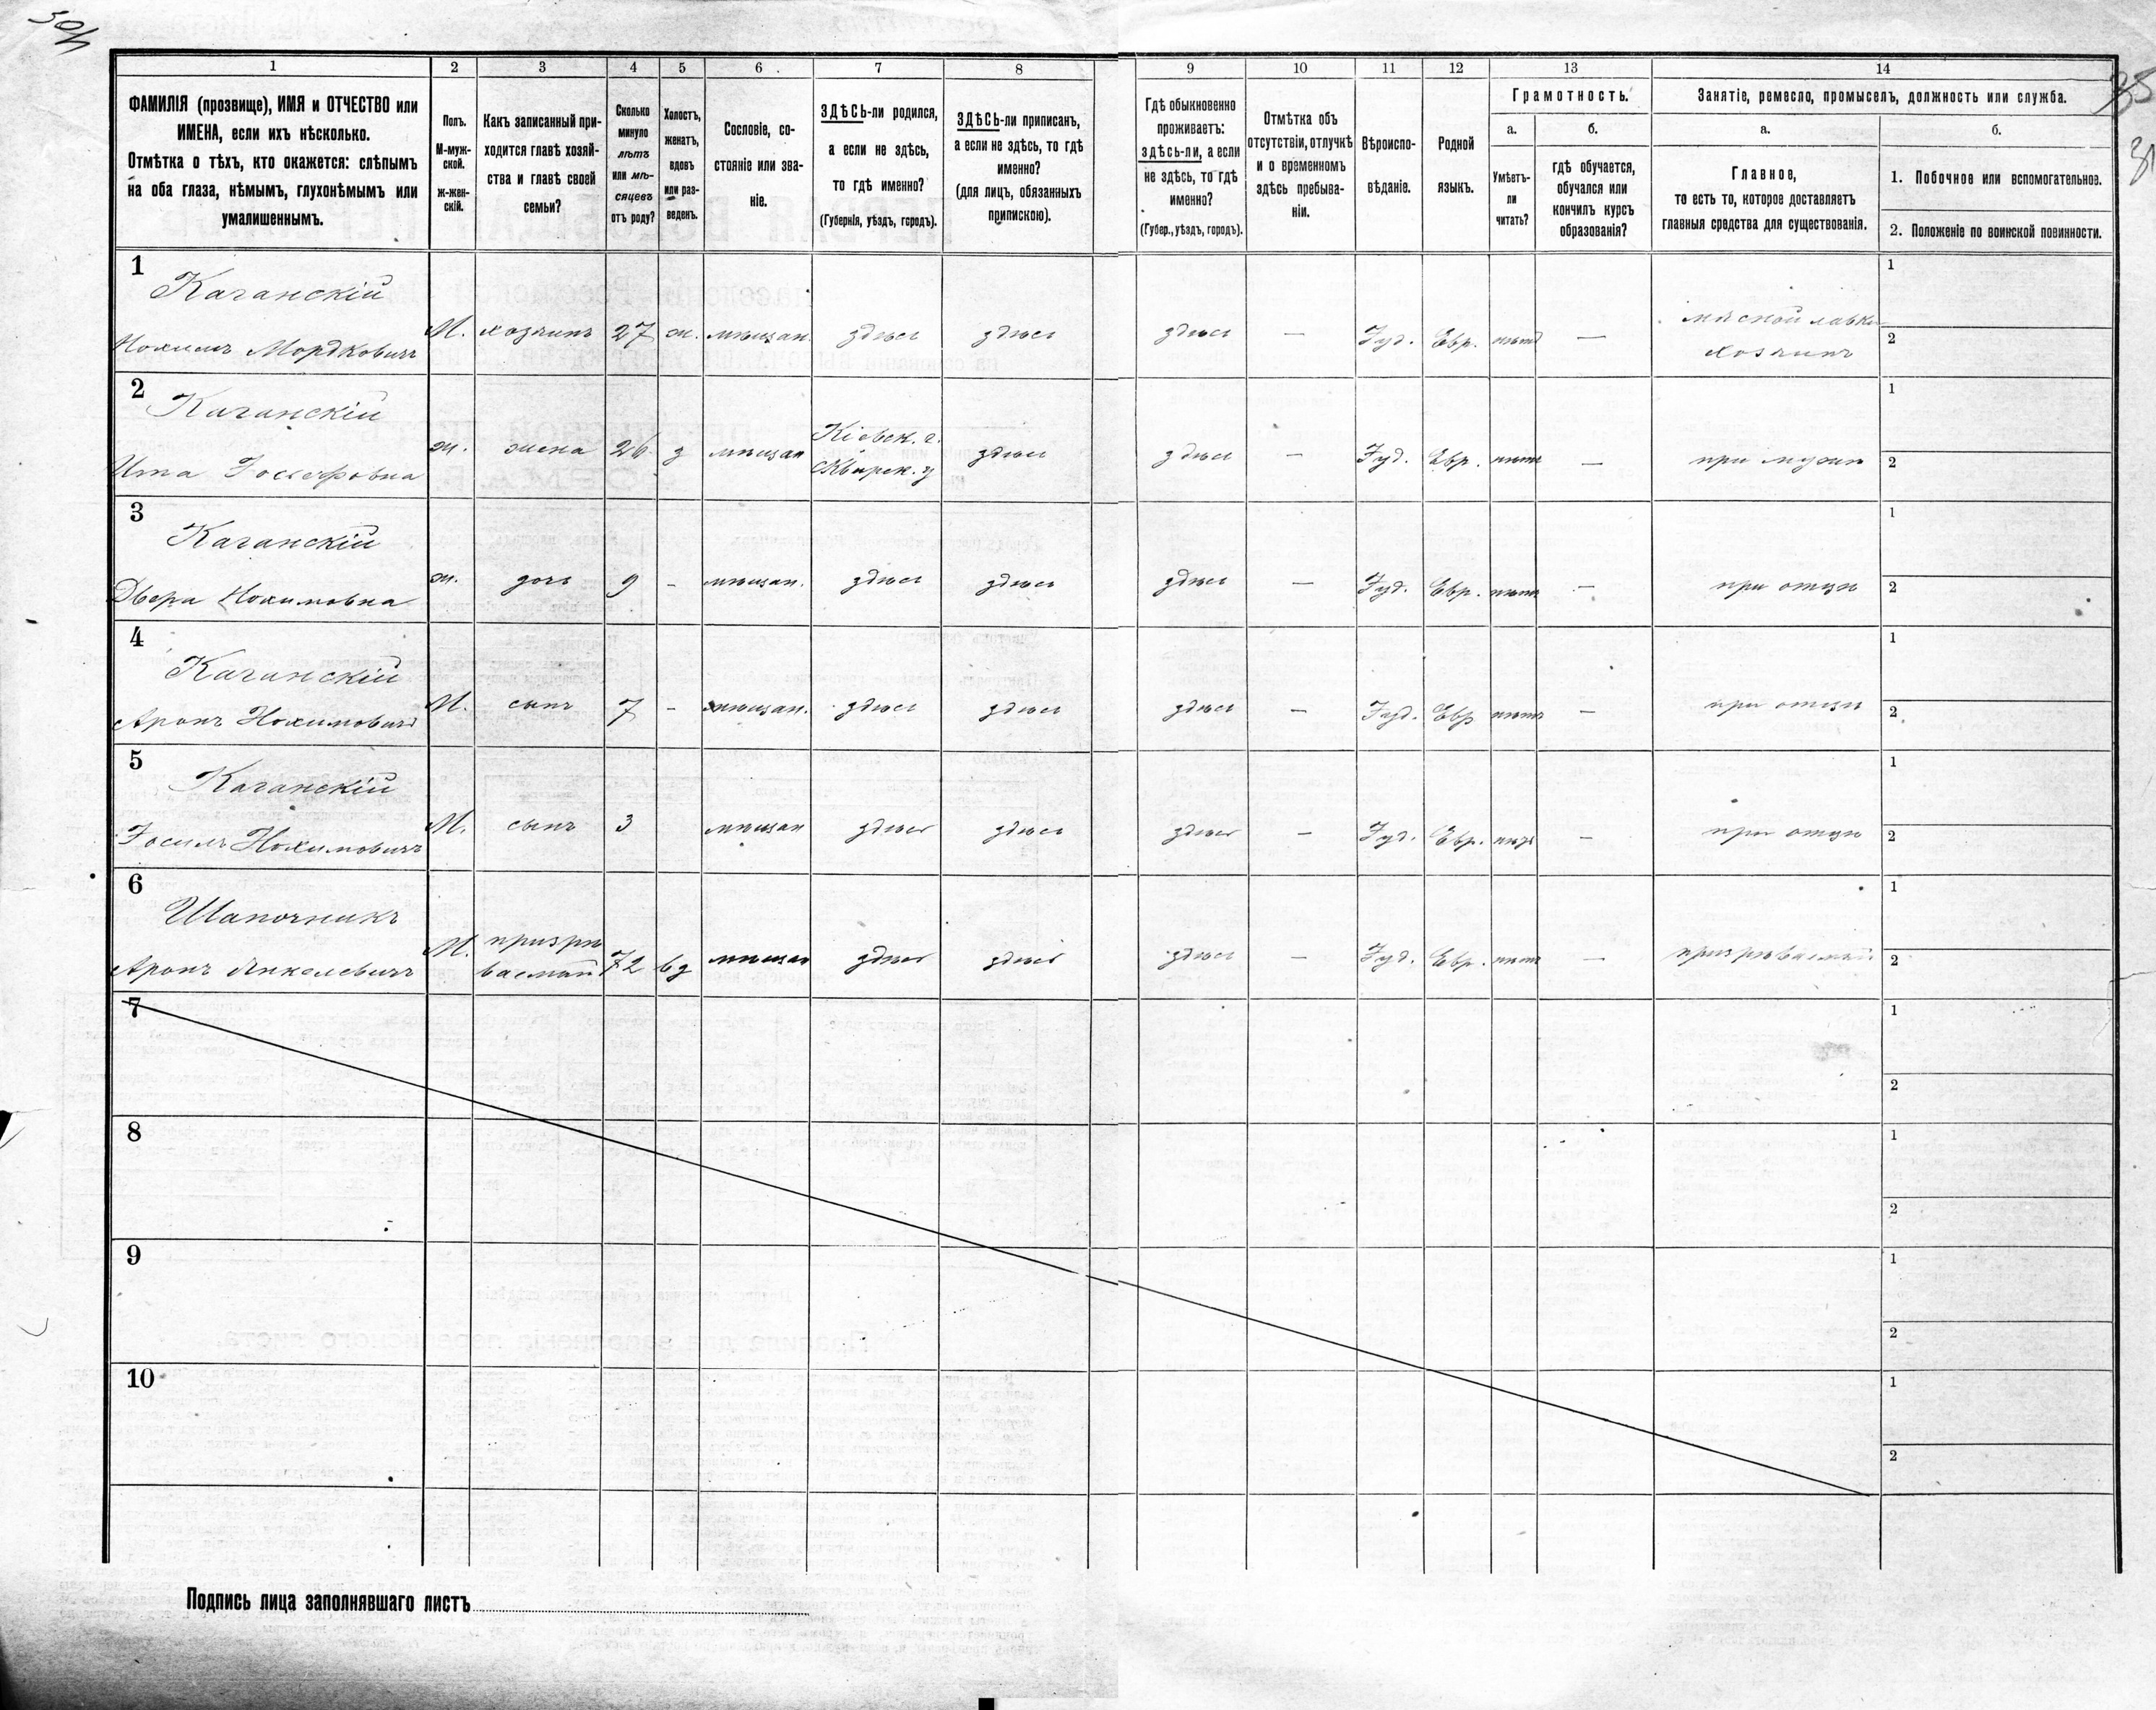 1 2 3 4 5 6 7 8 9 10 11 12 13 14
ФАМИЛІЯ (прозвище), ИМЯ и ОТЧЕСТВО или
ИМЕНА, если ихъ нѣсколько.
Отмѣтка о тѣхъ, кто окажется: слѣпымъ
на оба глаза, нѣмымъ, глухонѣмымъ или
умалишеннымъ.
Полъ.
М-муж-
ской.
ж-жен-
скій.
Какъ записанный при-
ходится главѣ хозяй-
ства и главѣ своей
семьи?
Сколько
минуло
лѣтъ
или мѣ-
сяцевъ
отъ роду?
Холостъ,
женатъ,
вдовъ
или раз-
веденъ.
Сословіе, со-
стояніе или зва-
ніе.
ЗДѢСЬ-ли родился,
а если не здѣсь,
то гдѣ именно?
(Губернія, уѣздъ, городъ).
ЗДѢСЬ-ли приписанъ,
а если не здѣсь, то гдѣ
именно?
(для лицъ, обязанныхъ
припискою).
Гдѣ обыкновенно
проживаетъ:
здѣсь-ли, а если
не здѣсь, то гдѣ
именно?
(Губер., уѣздъ, городъ).
Отмѣтка объ
отсутствіи, отлучкѣ
и о временномъ
здѣсь пребыва-
ніи.
Вѣроиспо-
вѣданіе.
Родной
языкъ.
Грамотность.
а.
Умѣетъ-
ли
читать?
б.
гдѣ обучается,
обучался или
кончилъ курсъ
образованія?
Занятіе, ремесло, промыселъ, должность или служба.
а.
Главное,
то есть то, которое доставляетъ
главныя средства для существованія.
б.
1. Побочное или вспомогательное.
2. Положеніе по воинской повинности.
1
Каганскій
Нохимъ Мордковичъ
М. хозяинъ 27 ж. мѣщан. здѣсь здѣсь здѣсь — Іуд. Евр. нѣтъ —
мясной лавки
хозяинъ
1
2
2
Каганскій
Ита Іосифовна
ж. жена 26 з мѣщан
Кіевск. г.
Сквирск. у
здѣсь здѣсь — Іуд. Евр. нѣтъ — при мужѣ
1
2
3
Каганскій
Двера Нохимовна
ж. дочь 9 - мѣщан. здѣсь здѣсь здѣсь — Іуд. Евр. нѣтъ — при отцѣ
1
2
4
Каганскій
Аронъ Нохимовичъ
М. сынъ 7 - мѣщан. здѣсь здѣсь здѣсь — Іуд. Евр нѣтъ — при отцѣ
1
2
5
Каганскій
Нохимовичъ
М. сынъ 3 мѣщан здѣсь здѣсь здѣсь — Іуд. Евр. нѣтъ — при отцѣ
1
2
6
Шапочникъ
Аронъ Янкелевичъ
М. призрѣ
ваемый 72 вд мѣщан здѣсь здѣсь здѣсь — Іуд. Евр. нѣтъ — призрѣваемый
1
2
7
1
2
8
1
2
9
1
2
10
1
2
Подпись лица заполнявшаго листъ